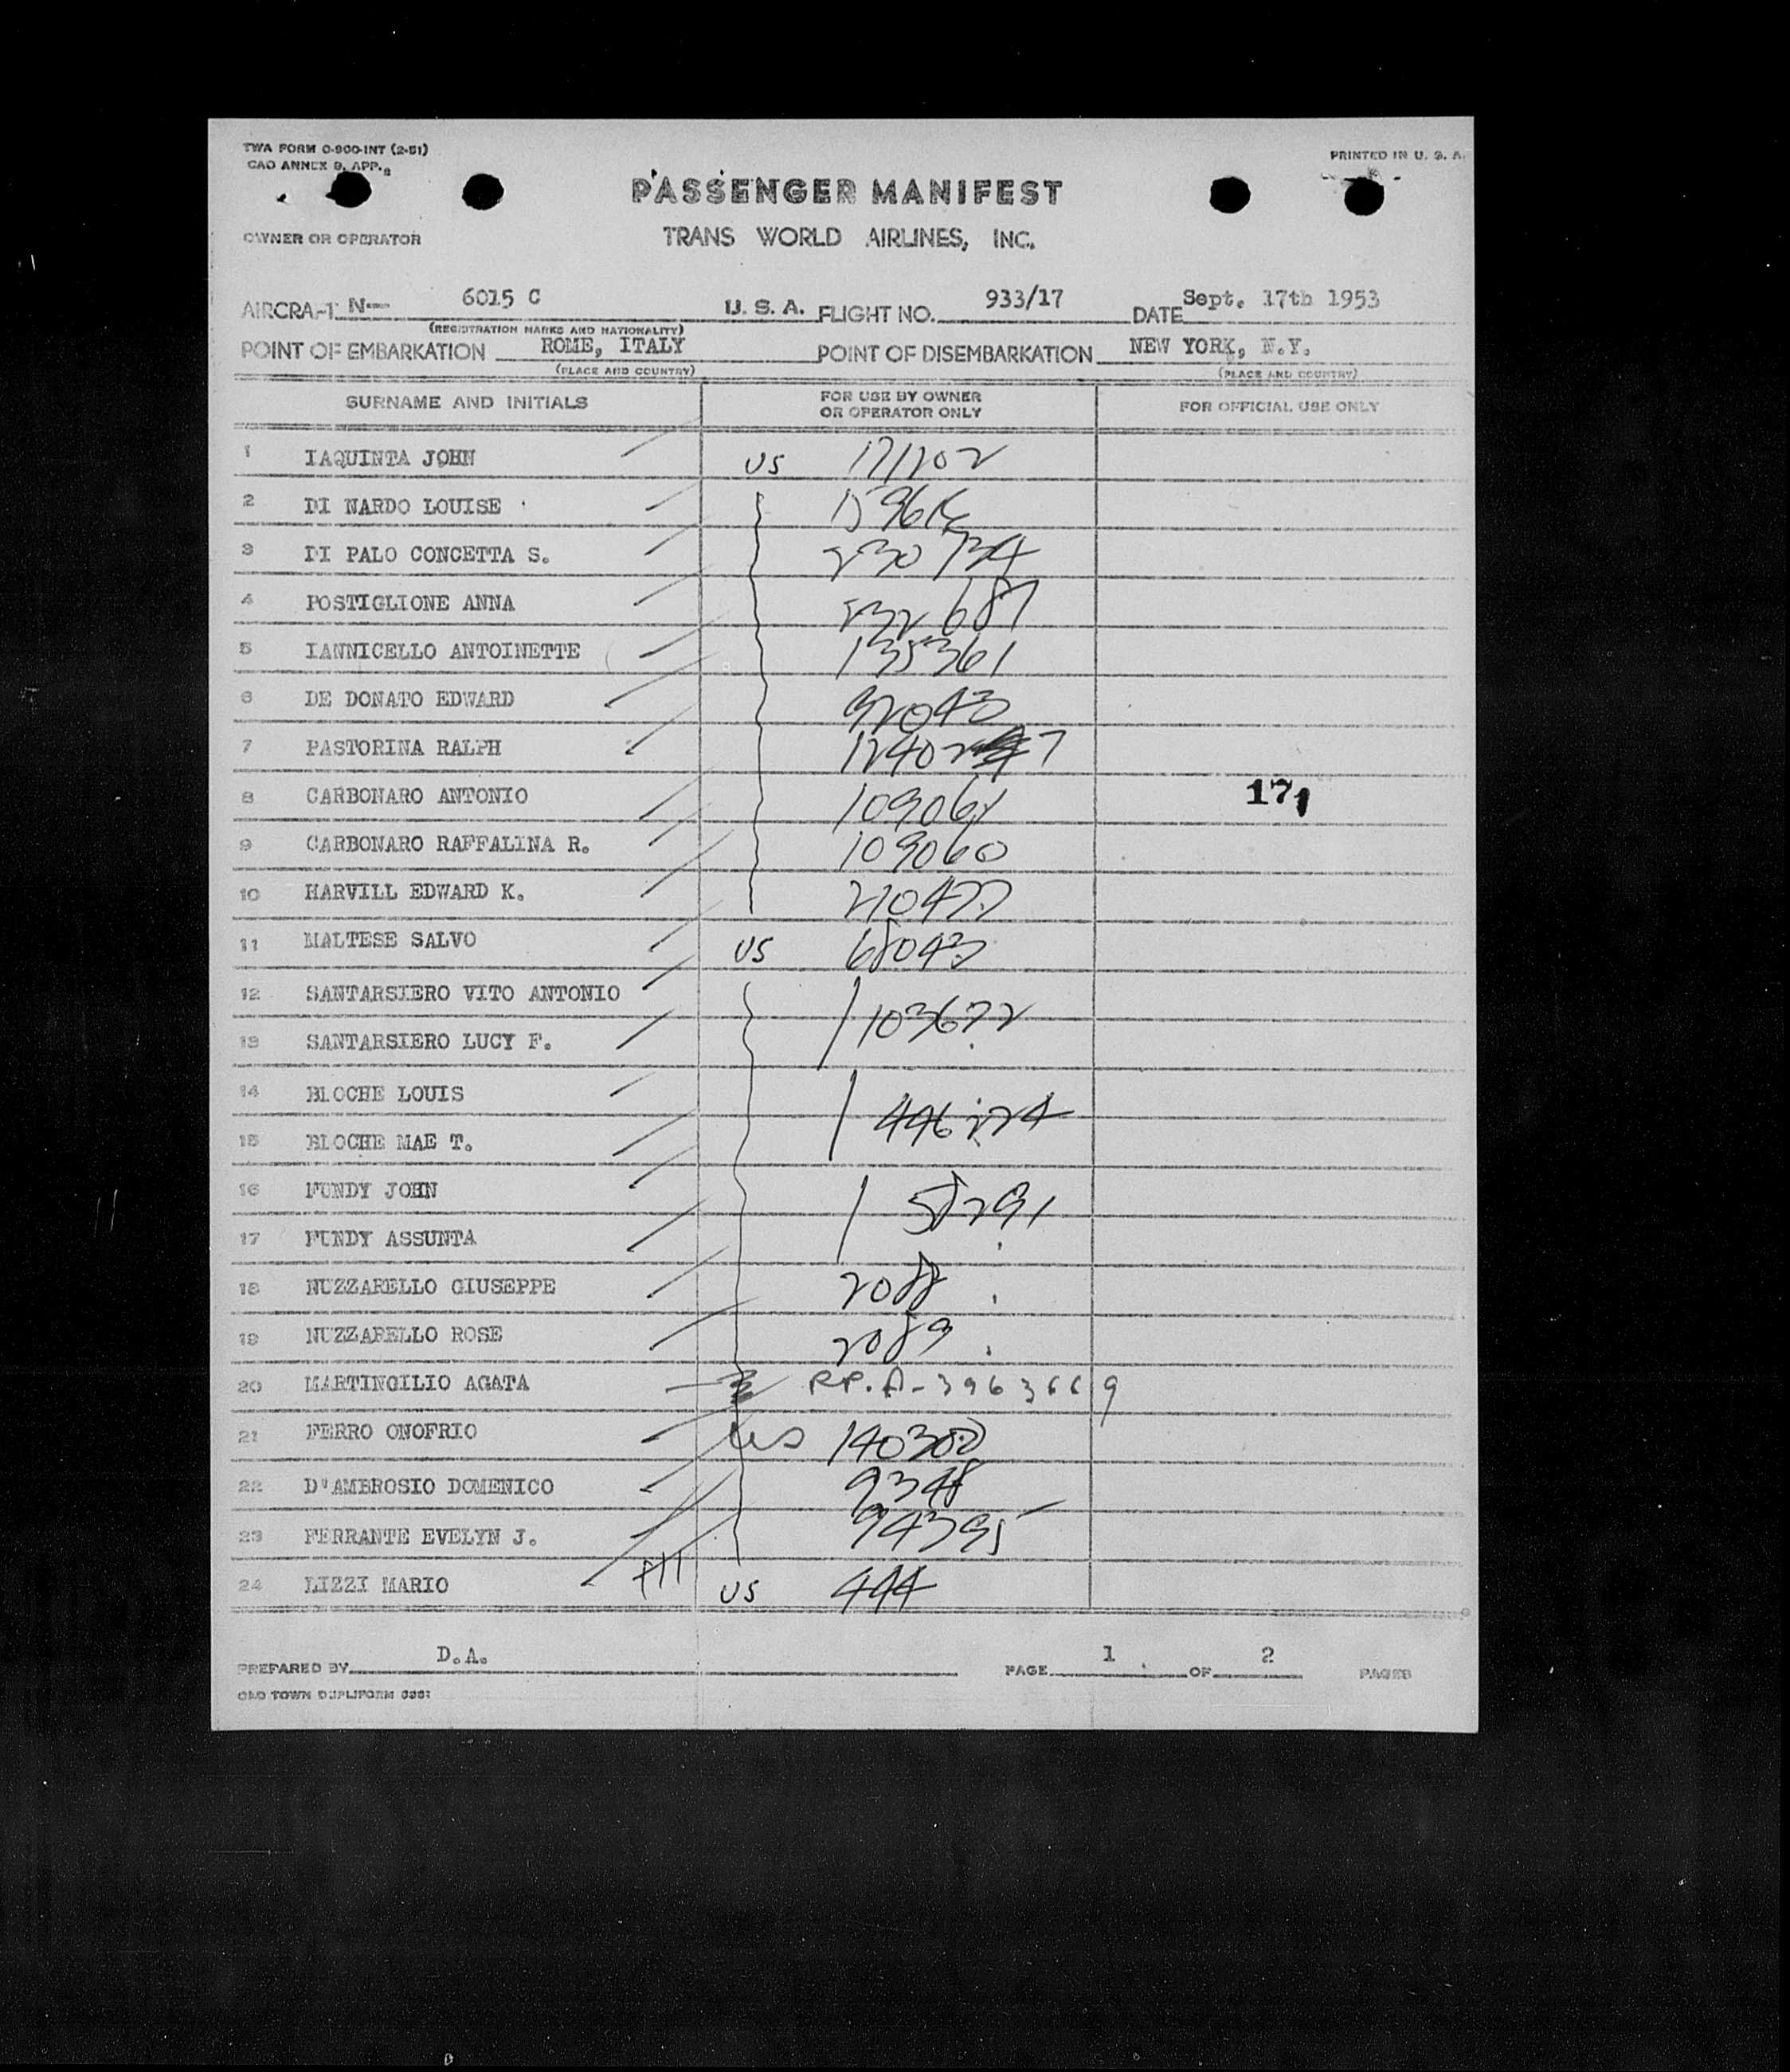 TWA FORM O-900-INT (2-51)
PRINTED IN U. S. A.
CAO ANNEX 9, APP.
PASSENGER MANIFEST
OWNER OR OPERATOR
TRANS WORLD AIRLINES, INC.
AIRCRAFT N— 6015 C U. S. A. FLIGHT NO. 933/17 DATE Sept. 17th 1953
(REGISTRATION MARKS AND NATIONALITY)
POINT OF EMBARKATION ROME, ITALY POINT OF DISEMBARKATION NEW YORK, N.Y.
(PLACE AND COUNTRY) (PLACE AND COUNTRY)
SURNAME AND INITIALS FOR USE BY OWNER OR OPERATOR ONLY FOR OFFICIAL USE ONLY
1 IAQUINTA JOHN US 171202
2 DI NARDO LOUISE
3 DI PALO CONCETTA S. 230734
4 POSTIGLIONE ANNA 232687
5 IANNICELLO ANTOINETTE 135361
6 DE DONATO EDWARD 92043
7 PASTORINA RALPH
8 CARBONARO ANTONIO 109061 171
9 CARBONARO RAFFALINA R. 109060
10 HARVILL EDWARD K. 210477
11 MALTESE SALVO US 68043
12 SANTARSIERO VITO ANTONIO 103672
13 SANTARSIERO LUCY F.
14 BLOCHE LOUIS 446274
15 BLOCHE MAE T.
16 FUNDY JOHN 58291
17 FUNDY ASSUNTA
18 NUZZARELLO GIUSEPPE 2088
19 NUZZARELLO ROSE 2089
20 MARTINGILIO AGATA RP.A-3963669
21 FERRO ONOFRIO US 140300
22 D'AMBROSIO DOMENICO 9348
23 FERRANTE EVELYN J. 94395
24 LIZZI MARIO US 444
PREPARED BY D.A. PAGE 1 OF 2 PAGES